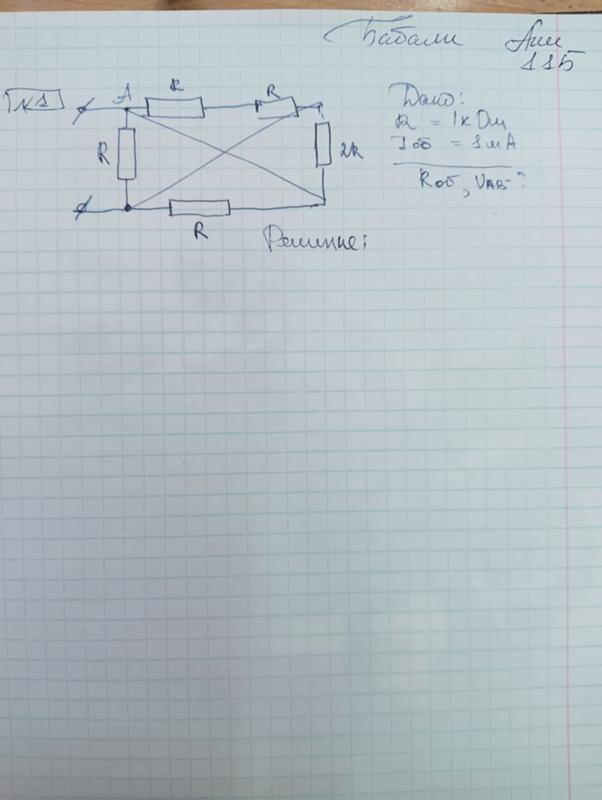 Бабали Али
11Б
№1
A R R
R 2R
R
Дано:
R = 1кОм
Iоб = 1мА
Rоб, UAB-?
Решение: